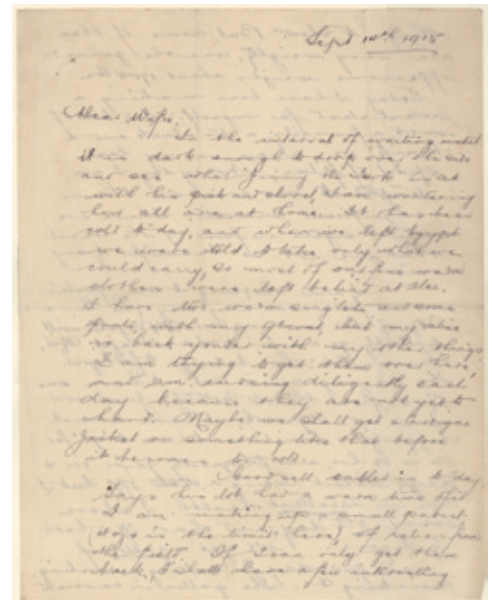 Sept 14th 1915
Dear Wife,
In the interval of waiting until
it is dark enough to drop over the side
and see what "Jimmy the Turk" is at
with his pick and shovel, I am wondering
how all are at home. It has been
cold to day, and when we left Egypt
we were told to take only what we
could carry, so most of our fine warm
clothes were left behind at Alex.
I have two warm singlets and some
with my
is back yonder with my other things
I am trying to get them over here,
and am cursing diligently each
day because they are not yet to
hand. Maybe we shall get a cardigan
jacket or something like that before
it becomes to cold.
called in to day
Says his lot had a warm time of it
I am making up a small parcel
is the limit here) of relics from
the field. If I can only get them
back, I shall have a few interesting